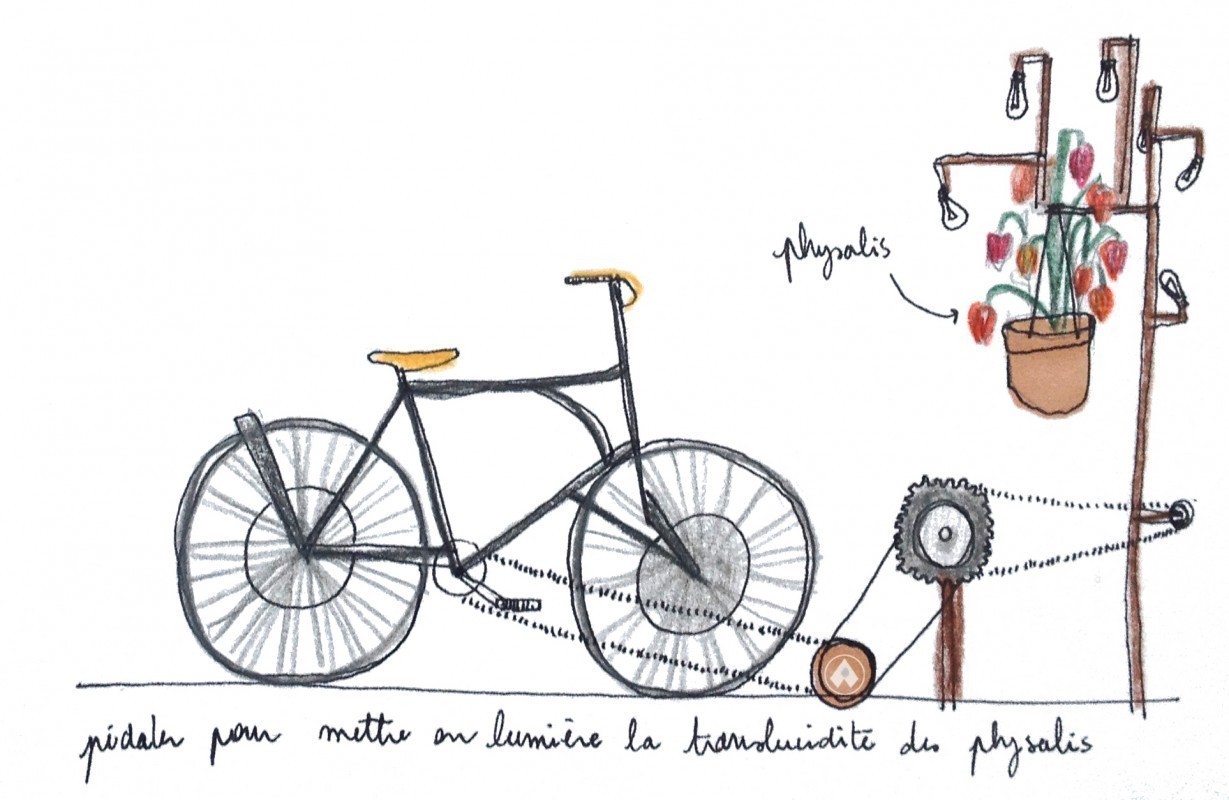 physalis
pédaler pour mettre en lumière la translucidité des physalis